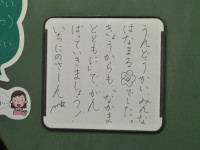 うんどうかい みんな
はなまる でした。
きょうからも、「なかま
とともに」で がん
ばっていきましょう!
いちにのさーん